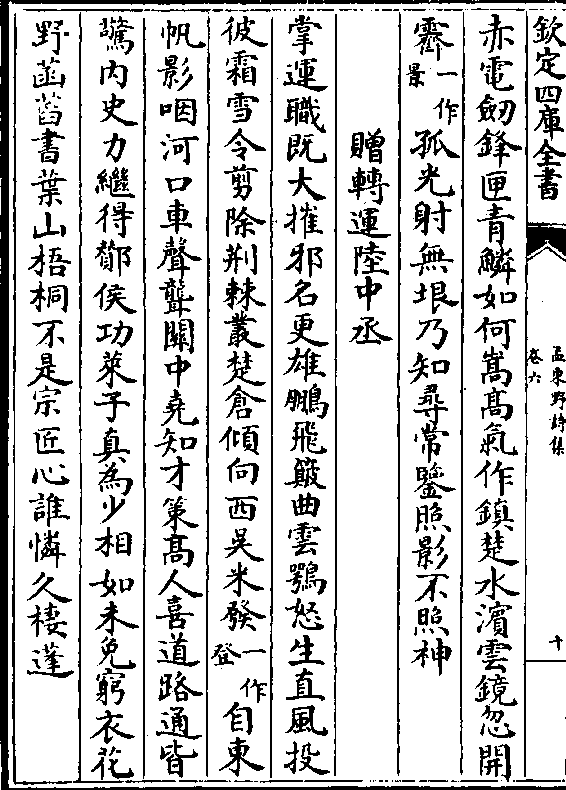 欽定四庫全書
孟東野詩集
卷六
十
赤電劒鋒匣青鱗如何嵩髙氣作鎮楚水濵雲鏡忽開
霽一作景孤光射無垠乃知尋常鑒照影不照神
贈轉運陸中丞
掌運職既大摧邪名更雄鵬飛簸曲雲鶚怒生直風投
彼霜雪令剪除荆棘叢楚倉傾向西吳米發一作登自東
帆影咽河口車聲聾關中堯知才策髙人喜道路通皆
驚內史力繼得酇侯功萊子真為少相如未免窮衣花
野菡萏書葉山梧桐不是宗匠心誰憐久棲蓬